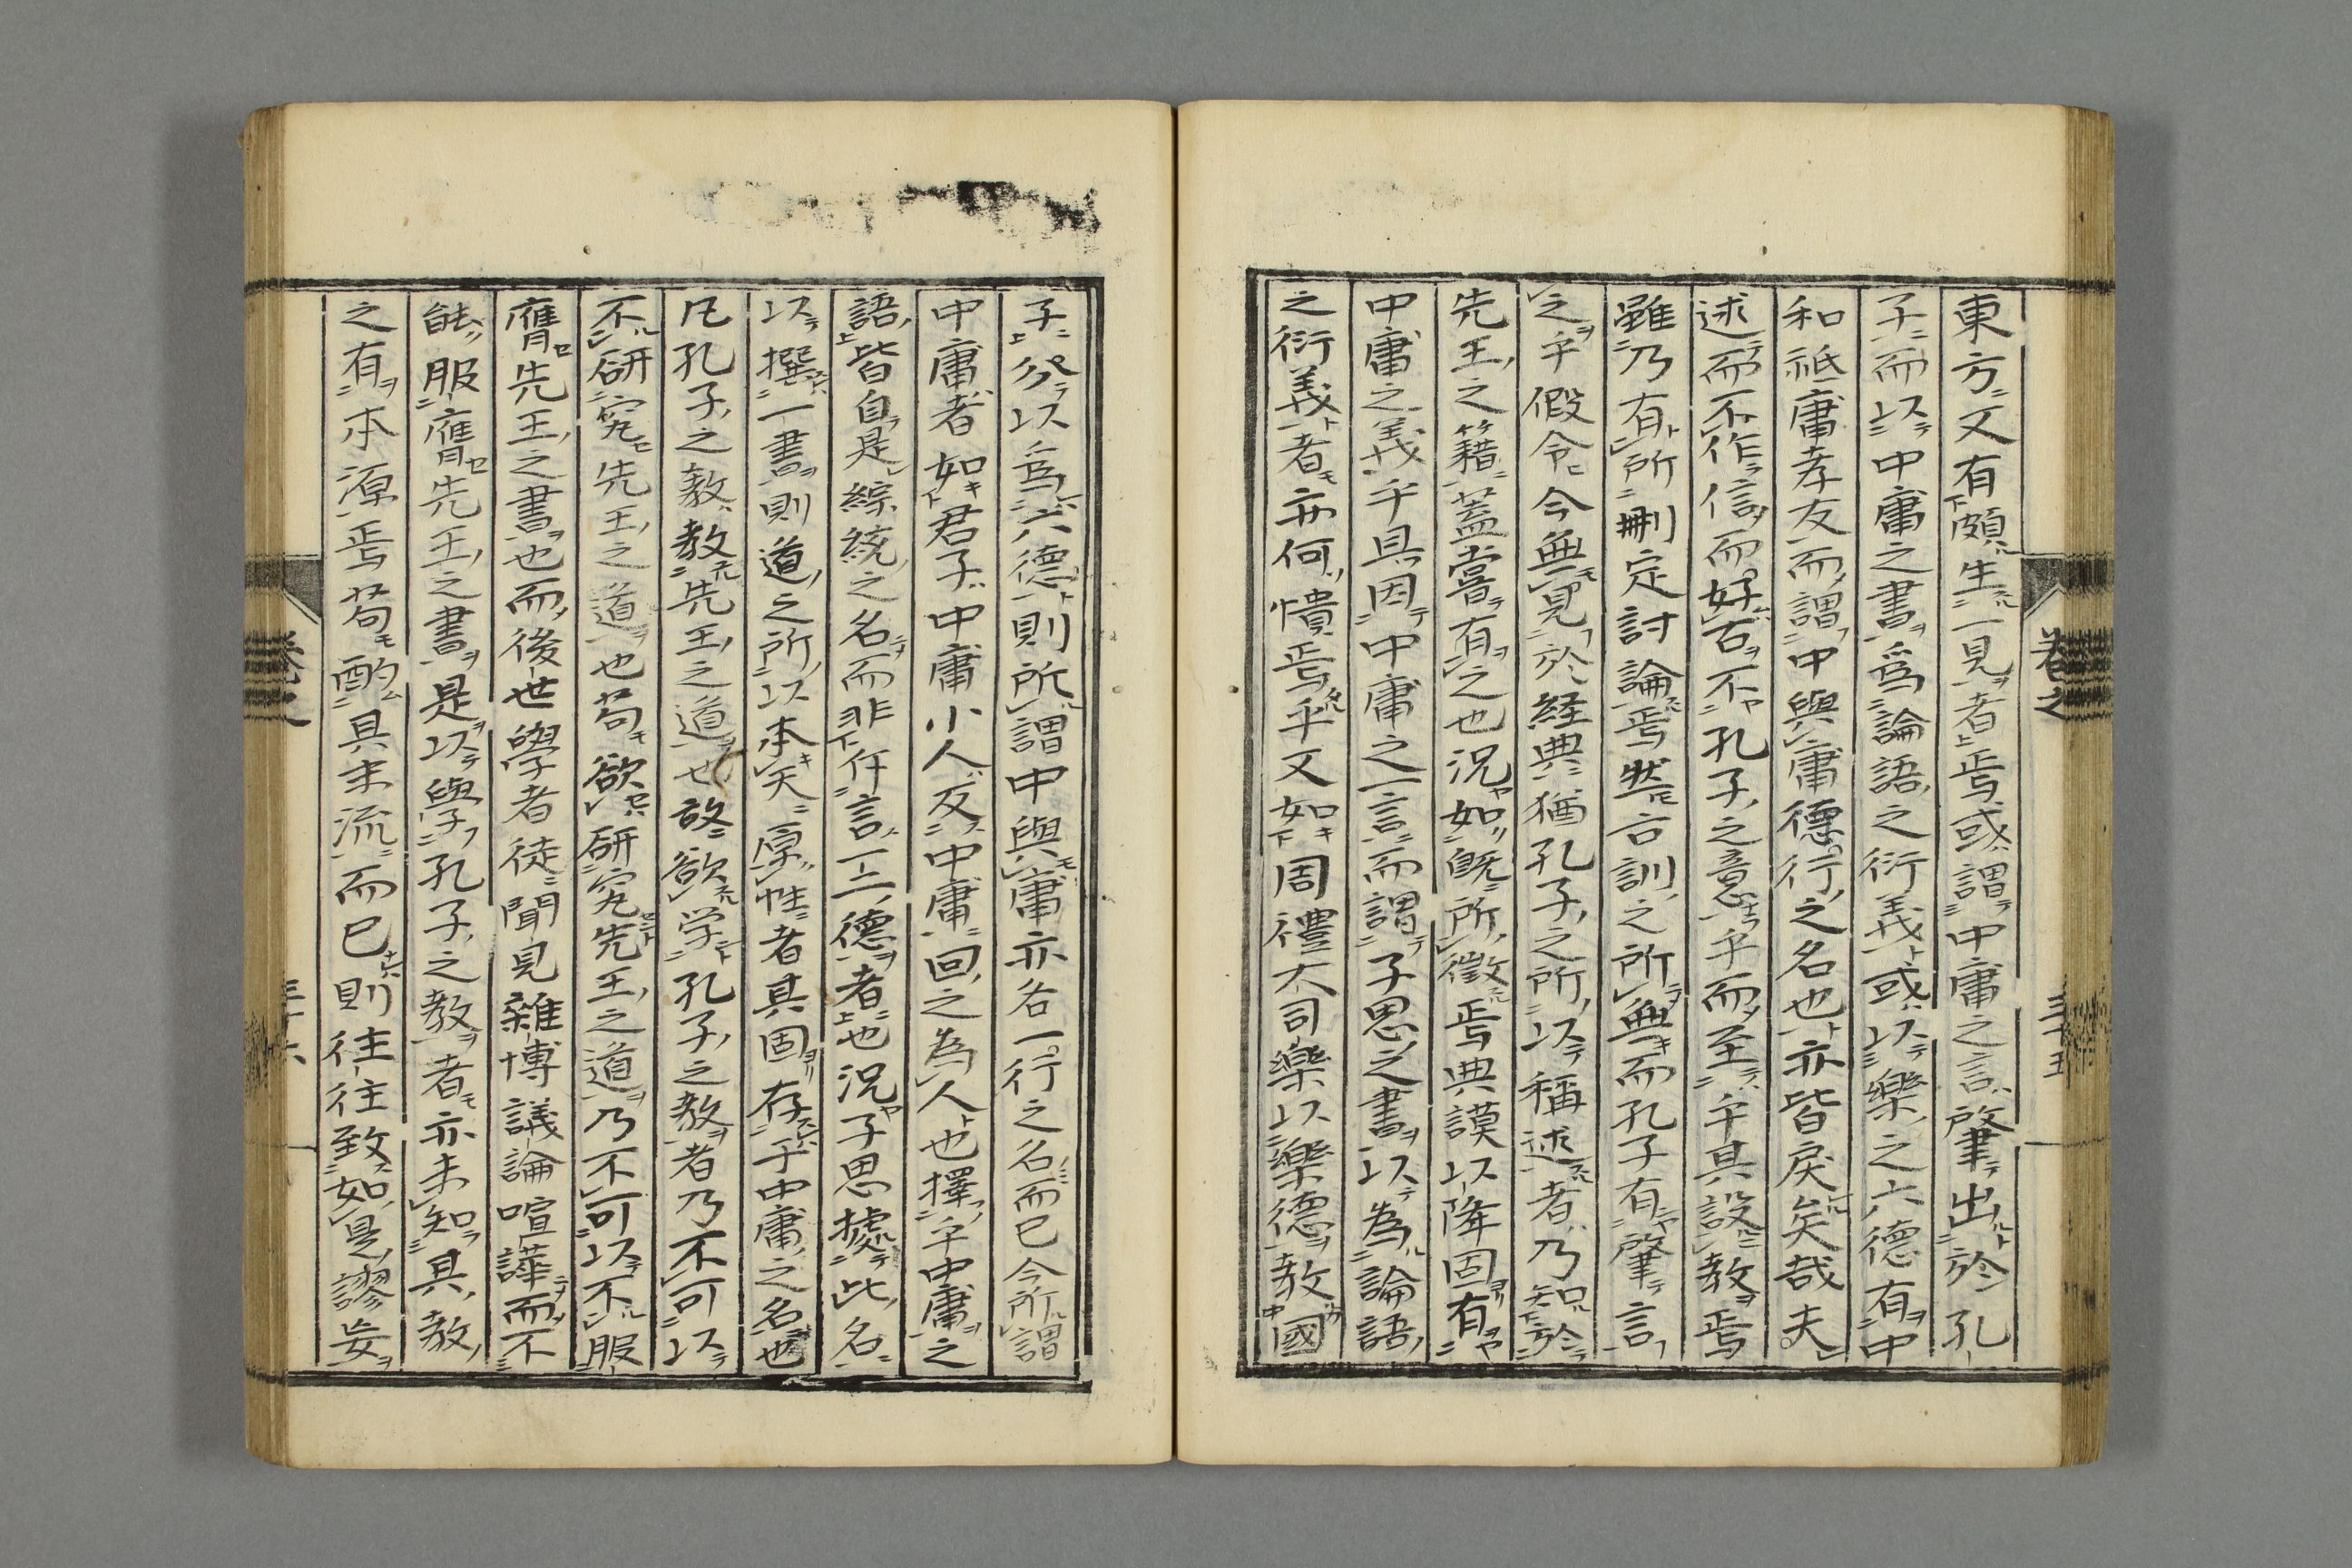 東方又有頗生一見者焉或謂中庸之言肇出於孔
子而以中庸之書爲論語之衍義或以樂之六德有中
和祗庸孝友而謂中與庸德行之名也亦皆戾矣哉夫
述而不作信而好古不孔子之意乎而至乎其設教焉
雖乃有所刪定討論焉然古訓之所無而孔子有肇言
之乎假令今無見於経典猶孔子之所以稱述者乃知於
先王之籍蓋嘗有之也況如既所徵焉典謨以降固有
中庸之義乎具因中庸之一言而謂子思之書以為論語
之衍義者亦何憒焉乎又如周禮大司樂以樂德教國
子分以爲六德則所謂中與庸亦各一行之名而已今所謂
中庸者如君子中庸小人反中庸回之為人也擇乎中庸之
語皆自是綜統之名而非仵言一二德者也況子思據此名
以撰一書則道之所以本天原性者具固存乎中庸之名也
凡孔子之教教先王之道也故欲学孔子之教者乃不可以
不研究先王之道也苟欲研究先王之道乃不可以不服
膺先王之書也而後世學者徒聞見雜博議論喧譁而不
能服膺先王之書是以學孔子之教者亦未知其教
之有本源焉苟酌具末流而已則往往致如是謬妄
卷之
三十五
三十六